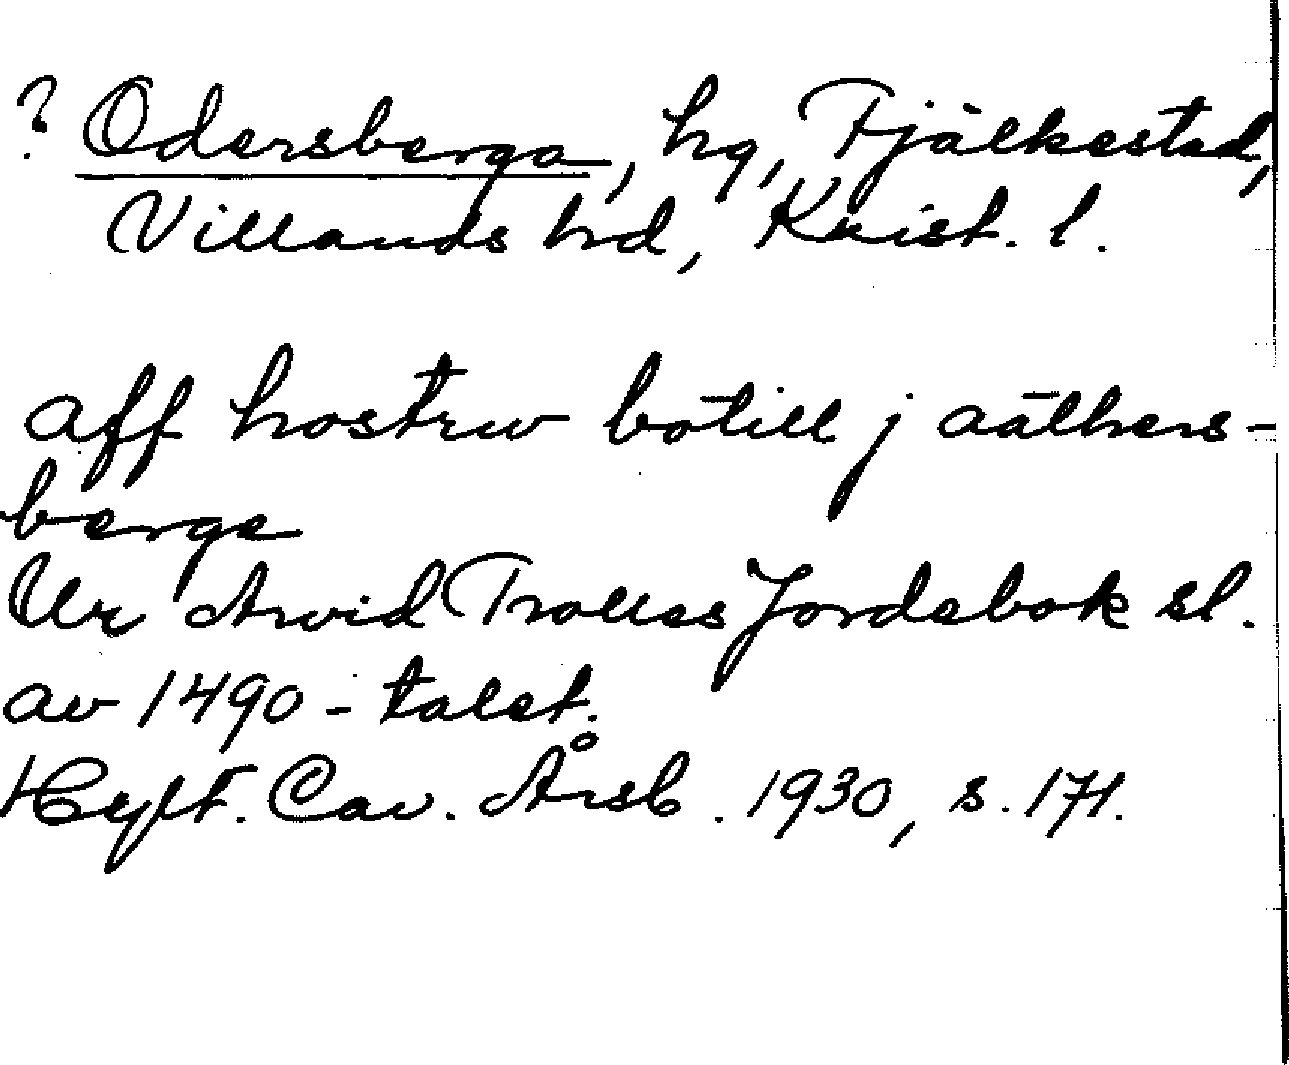 ? Odersberga, hg, Fjälkestad,
Villands hd, Krist. l.
aff hostrw botill j aathers-
berge
Ur Arvid Trolles Jordebok sl.
av 1490-talet.
Hylt. Cav. Årsb. 1930, s. 171.